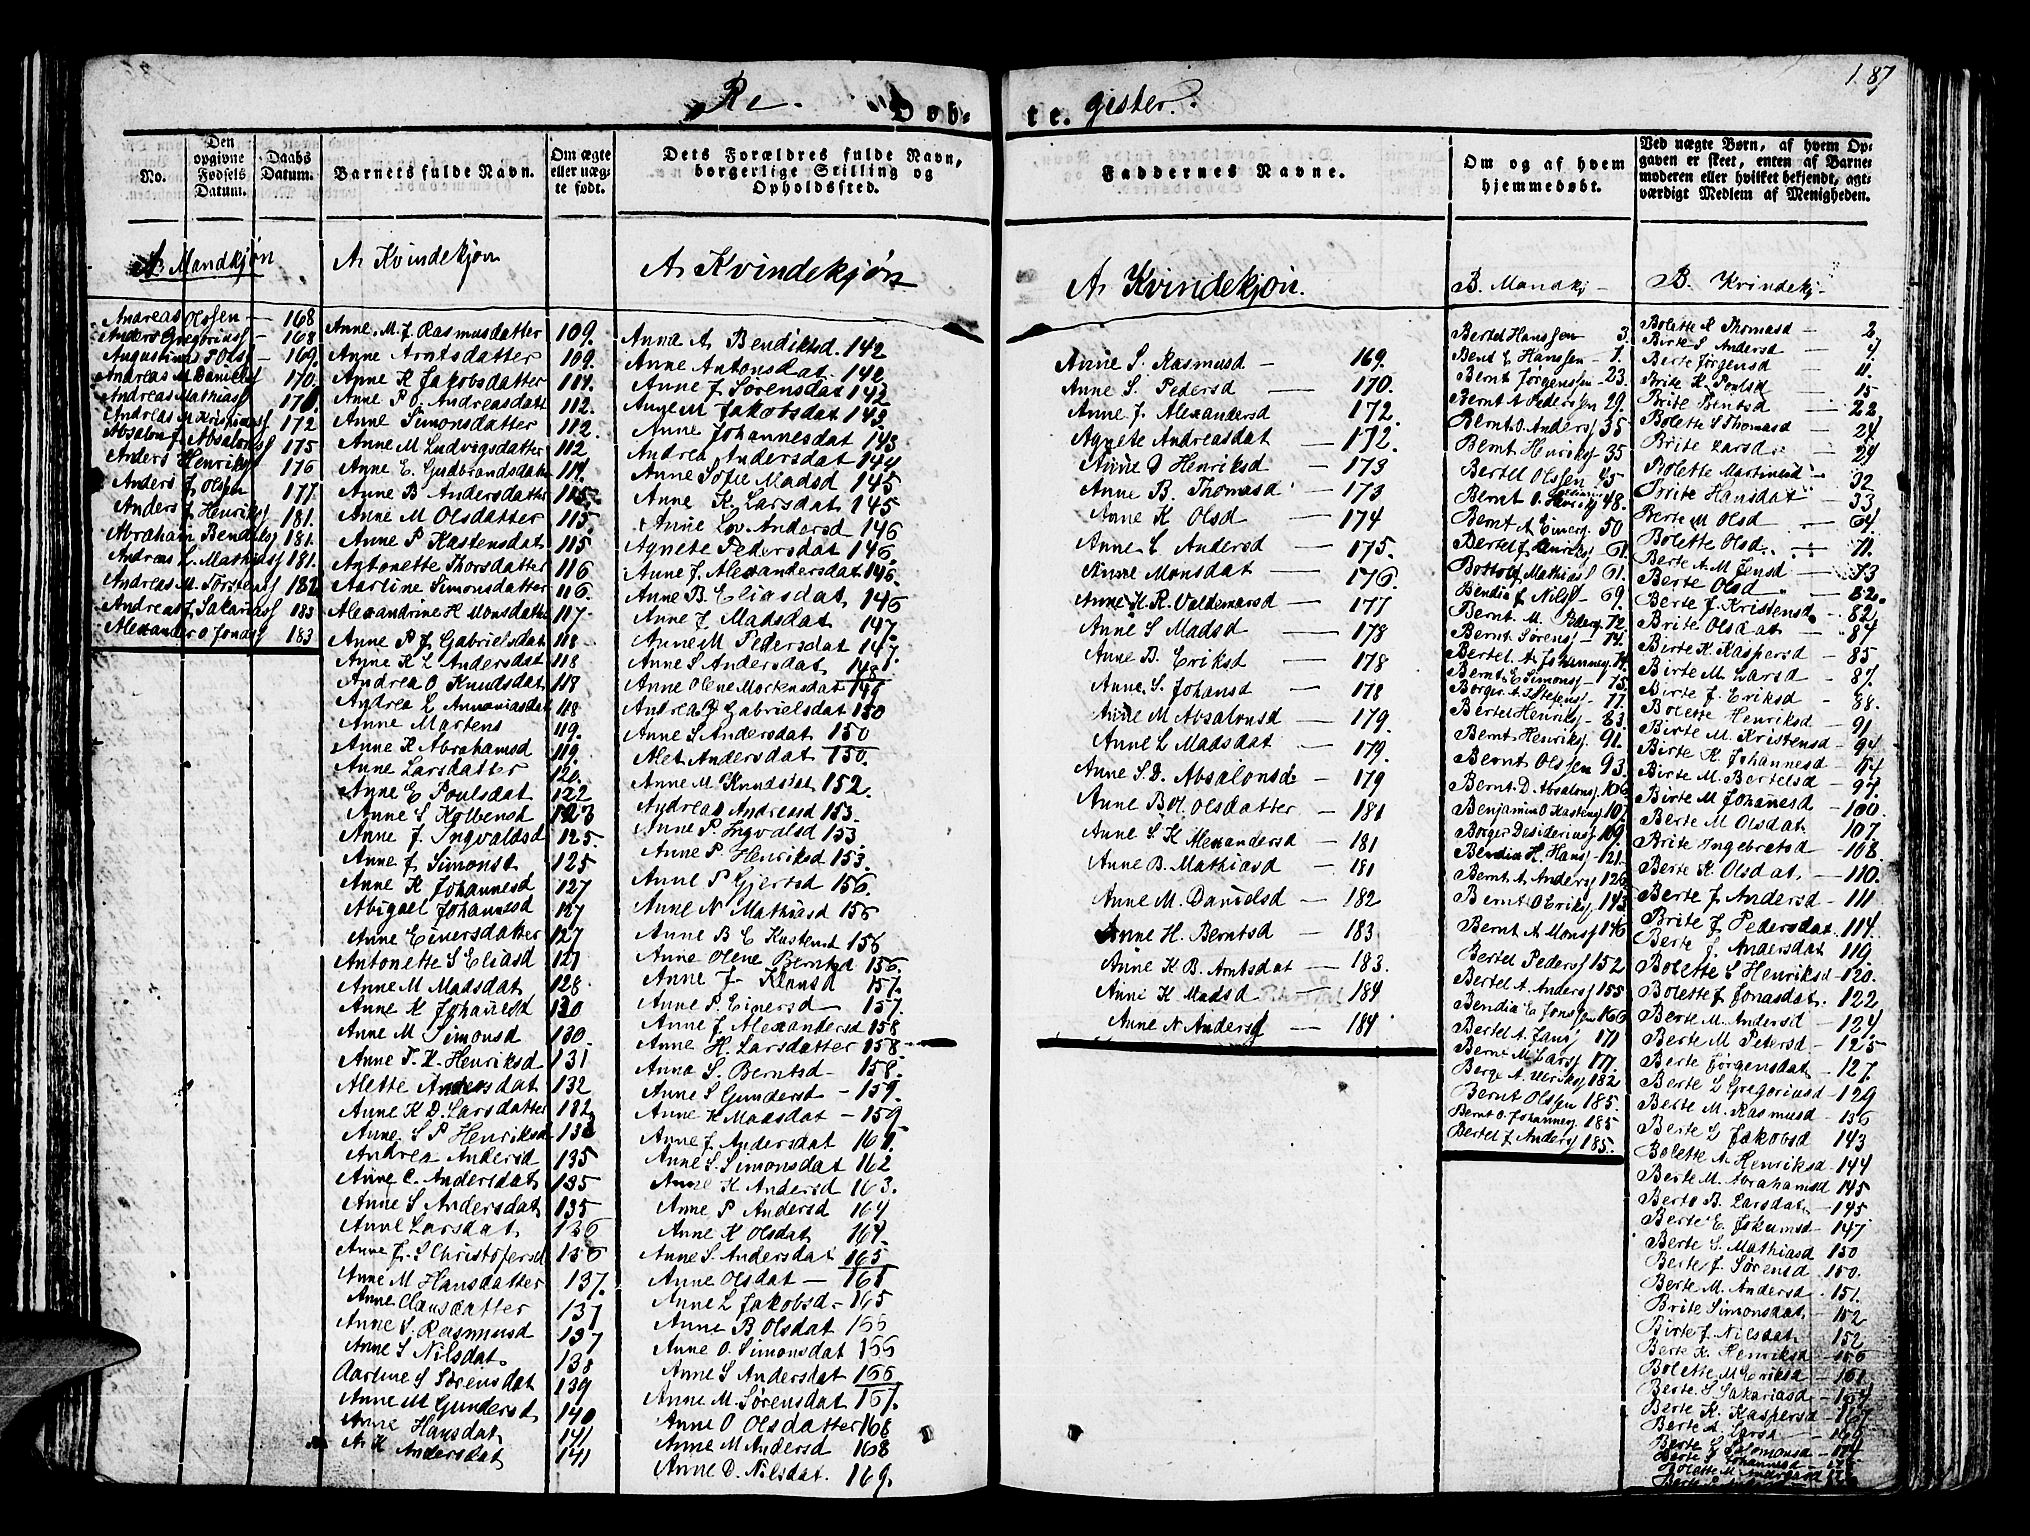 187
Re-
Døb-
te.
gister.
No.
Den opgivne Fødsels Datum.
Daabs Datum.
Barnets fulde Navn.
Om ægte eller uægte født.
Dets Forældres fulde Navn, borgerlige Stilling og Opholdsfted.
Faddernes Navne.
Om og af hvem hjemmedøbt.
Ved uægte Børn, af hvem Opgaven er skeet, enten af Barnemoderen eller hvilket bekjendt, agtværdigt Medlem af Menigheden.
A. Mandkjøn
Andreas Olssen — 168
Anders Gregoriussf — 168
Augustinus T Olss — 169
Andreas M Danielsf 170.
Andreas Mathiasf 170
Andreas M Kristiansf 172
Absalon J. Absalonsf 175
Anders Henriksf 176
Anders J. Olsen 177.
Anders J Henriksf 181.
Abraham Bendiksf 181.
Andreas L. Mathiasf 181.
Andreas M. Torstensf 182
Andreas J. Sakariasf 183
Alexander O Jonasf 183
A. Kvindekjøn
Anne. M. J. Rasmusdatter 109.
Anne Arntsdatter 109.
Anne K Jakobsdatter 111.
Anne P. O. Andreasdatt 112.
Anne Simonsdatter 112.
Anne M Ludvigsdatter 112
Anne E. Gudbrandsdatter 114.
Anne B Andersdatter 115.
Anne M Olsdatter 115.
Anne P. Kastensdat 115
Antonette Thorsdatter 116
Aarline Simonsdatter 116.
Alexandrine H Monsdatter 117.
Anne P J Gabrielsdat 118
Anne K L Andersdat 118
Andrea O Knudsdat 118
Andrea L Annaniasdat 118
Anne Martens 119.
Anne K Abrahamsd 119.
Anne Larsdatter 120.
Anne E Poulsdat 122
Anne S Kolbensd 123
Anne J Ingvaldsd 125.
Anne J Simonsd 125
Anne K Johannesd 127
Abigael Johannesd 127
Anne Einersdatter 127
Antonette S Eliasd 127
Anne M Madsdat 128.
Anne K Johannesd 130
Anne M Simonsd 130.
Anne T. K. Henriksd 131
Alette Andersdat 132
Anne K D. Larsdatter 132
Anne. S P Henriksd
Andrea Andersd 135
Anne C. Andersdat 135
Anne S Andersdat 135
Anne Larsdat 136
Anne J. S Christofersd 136
Anne M Hansdatter 137.
Anne Clausdatter 137
Anne S. Rasmusd 137
Anne S Nilsdat 138
Aarline S Sørensdat 139
Anne M Gundersd 140
Anne Hansdat 141
A. K Andersdat 141
A. Kvindekjøn
Anna A Bendiktsd. 142
Anne Antonsdat 142
Anne J Sørensdat 142
Anne M Jakobsdat 143.
Anne Johannesdat 143
Andrea Andersdat 144
Anne Sofie Madsd 145
Anne K Larsdat 145
Anne Lov. Andersd 146
Agnete Pedersdat 146.
Anne J. Alexandersdat 146.
Anne B Eliasdat 146
Anne J Madsdat 147
Anne M Pedersdat 147.
Anne S Andersdat 148.
Anne Olene Mortensdat 149
Andrea J Gabrielsdat 150
Anne S Andersdat 150
Alet Andersdat 150.
Anne M. Knudsdat 152.
Andrea Andreasd 153.
Anne P Ingvalsd 153
Anne P. Henriksd 153.
Anne P Gjertsd 156.
Anne N Mathiasd 156
Anne B E Kastensd 156
Anne Olene Berntsd 156.
Anne J Klausd 157.
Anne P. Einersd — 157.
Anne J. Alexandersd 158
Anne H. Larsdatter 158-
Anna S. Berntsd - 158.
Anne S Gundersd - 159.
Anne K Madsdat - 159
Anne J. Andersdat 161.
Anne S. Simonsdat 162
Anne K Andersd 163.
Anne P Andersd 164
Anne K Olsdat 164.
Anne S. Andersdat 165
Anne Olsdat — 165
Anne L Jakobsd - 165
Anne B Olsdat 166
Anne O. Simonsdat 166
Anne S Andersdat 166
Anne M. Sørensdat 167.
Anne O Olsdatter 168
Anne M Andersd 168
Anne D. Nilsdat. 169.
A. Kvindekjøn.
Anne S. Rasmusd — 169.
Anne S. Pedersd — 170.
Anne J. Alexandersd 172.
Agnete Andreasdat — 172.
Anne D Henriksd — 173
Anne B. Thomasd — 173
Anne K Olsd — 174
Anne L Andersd — 175.
Anne Monsdat — 176.
Anne K. R. Valdemarsd — 177
Anne S Madsd — 178
Anne B. Eriksd — 178
Anne. S. Johansd — 178
Anne M Absalonsd — 179.
Anne L Madsdat — 179.
Anne S.D. Absalonsd — 179
Anne Bot. Olsdatter — 181
Anne S. K Alexandersd — 181
Anne B. Mathiasd — 181
Anne M. Danielsd — 182
Anne H. Berntsd — 183
Anne K B. Arntsdat — 183.
Anne K Madsd 184
Anne N Andersd — 184
B. Mandkj —
Bertel Hanssen 3.
Bent E Hanssen - 1.
Bernt Jørgenssen - 23.
Bernt A Pederssen 29.
Bernt O. Andersf 35
Bernt Henriksf 35
Bertel Olssen 45
Bernt O. Henriksf 48.
Bernt A Einersf 50
Bertel J. Henriksf 61.
Bottolf Mathiasf 61.
Bendix J Nilsf 69.
Bernt M. Pedersf 72
Bernt Sørensf - 74.
Bertel A. Johannesf 74.
Bernt E Simonsf — 75.
Borger A. Stefensf - 77.
Bertel Henriksf - 83.
Bernt Henriksf 91.
Bernt Olssen 93.
Bernt D. Absalonsf 106
Benjamin O Kastensf 107
Borger Desideriusf 109.
Bendix H. Hansf 121
Bernt A. Andersf 126
Bernt O Eriksf 143
Bernt A Monsf 146
Bertel Pedersf 152
Bertel A. Andersf 155
Bendix E Jonsf 166
Bertel A. Jansf 171
Bernt M. Larsf 177.
Berge A. Ulriksf 182
Bernt Olsen 185.
Bernt O. Johannesf 185
Bertel J Andersf 185.
B. Kvindekj.
Bolette K Thomasd — 2.
Birte S Andersd — 4
Berte Jørgensd — 11.
Brite K. Poulsd — 15
Brite Bentsd — 22
Bolette S Thomasd — 24
Brite Larsd — 29
Bolette Martinusd — 32
Brite Hansdat — 33
Berte M Olsd — 64.
Bolette Olsd. — 71.
Berte A. M. Jensd — 73
Berte Olsd — 82.
Berte J. Kristensd 82.
Brite Olsdat — 84
Birte K. Kaspersd — 85
Birte M Larsd — 87.
Birte J Eriksd — 88.
Bolette Henriksd — 91
Birte M. Kristensd — 94
Birte K. Johannesd — 94
Birte M. Bertelsd — 97.
Birte M Johannesd — 100.
Berte M Olsdat — 107.
Brite Ingebretsd — 108.
Berte K. Olsdat — 110.
Berte J. Andersd — 111
Brite J Pedersdat 114.
Berte J. Andersdat 119.
Bolette S Henriksd - 120.
Bolette J Jonasdat. 122
Berte M. Andersd — 124
Berte M Petersd - 125
Berte Jørgensdat — 127.
Berte L Gregoriusd - 129
Berte M. Rasmusd - 136
Berte L Jakobsd 143
Bolette A. Henriksd - 144
Berte M. Abrahamsd 145
Berte B. Larsdat - 145
Berte E. Jokumsd - 147
Berte S. Mathiasd 150
Berte J Sørensd - 150.
Berte M. Andersd - 151.
Brite Simonsdat - 152
Birte J. Nilsdat - 152
Berte K. Henriksd - 156
Bolette M Eriksd - 161
Berte. S Sakariasd - 164
Berte K. Kaspersd - 167.
Berte A Larsd - 169
Berte S Salomonsd - 174
Berte S Johannesd
Bolette M Andreasd